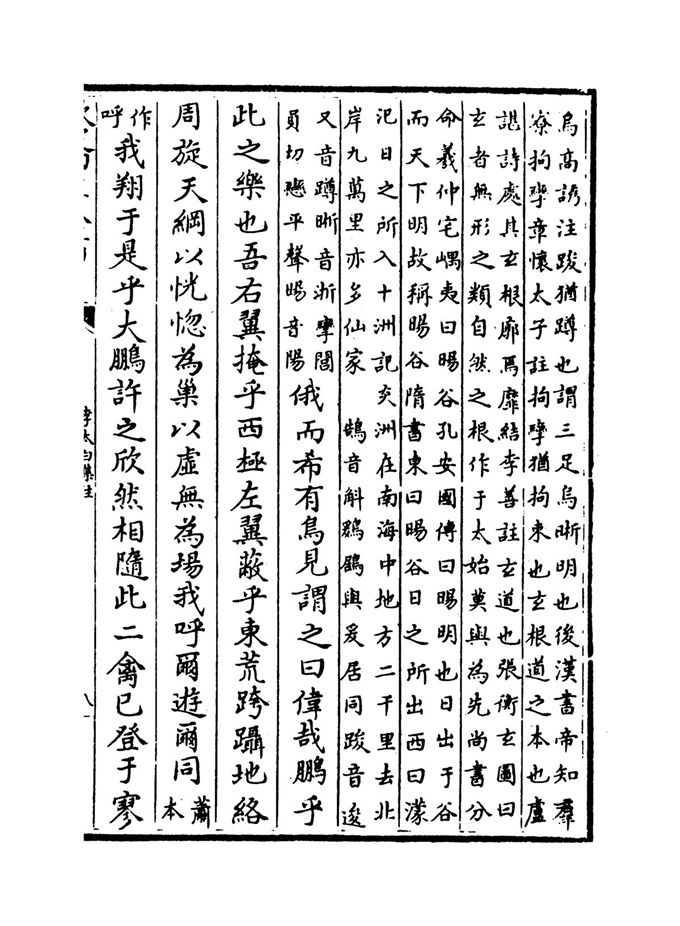 烏高誘注踆猶蹲也謂三足烏晰明也後漢書帝知羣
寮拘攣章懷太子註拘攣猶拘束也玄根道之本也盧
諶詩處其玄根廓焉靡結李善註玄道也張衡玄圖曰
玄者無形之類自然之根作于太始莫與為先尚書分
命羲仲宅嵎夷曰暘谷孔安國傳曰暘明也日出于谷
而天下明故稱暘谷隋書東曰暘谷日之所出西曰濛
汜日之所入十洲記炎洲在南海中地方二千里去北
岸九萬里亦多仙家　鵠音斛鶢鶋與爰居同踆音逡
又音蹲晰音淅攣閭
員切戀平聲暘音陽
俄而希有鳥見謂之曰偉哉鵬乎
此之樂也吾右翼掩乎西極左翼蔽乎東荒跨躡地絡
周旋天綱以恍惚為巢以虛無為場我呼爾遊爾同蕭本
作呼我翔于是乎大鵬許之欣然相隨此二禽已登于寥
李太白集注
八